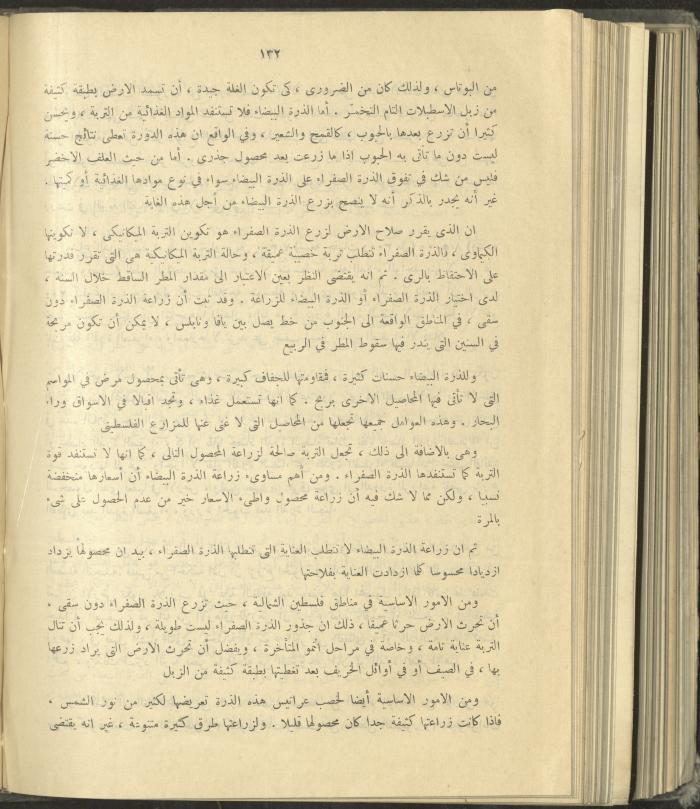 ١٣٢
من البوتاس ، ولذلك كان من الضرورى ، كى تكون الغلة جيدة ، أن تسمد الارض بطبقة كثيفة
من زبل الاسطبلات التام التخمّر . أما الذرة البيضاء فلا تستنفد المواد الغذائية من التربة ، ويحسن
كثيرا أن تزرع بعدها بالحبوب ، كالقمح والشعير ، وفي الواقع ان هذه الدورة تعطى نتائج حسنة
ليست دون ما تأتى به الحبوب اذا ما زرعت بعد محصول جذرى . أما من حيث العلف الاخضر
فليس من شك في تفوق الذرة الصفراء على الذرة البيضاء سواء في نوع موادها الغذائية أو كميتها .
غير أنه يجدر بالذكر أنه لا ينصح بزرع الذرة البيضاء من أجل هذه الغاية
ان الذى يقرر صلاح الارض لزرع الذرة الصفراء هو تكوين التربة الميكانيكى ، لا تكوينها
الكيماوى ، فالذرة الصفراء تتطلب تربة خصيبة عميقة ، وحالة التربة الميكانيكية هى التى تقرر قدرتها
على الاحتفاظ بالرى . ثم انه يقتضى النظر بعين الاعتبار الى مقدار المطر الساقط خلال السنة ،
لدى اختيار الذرة الصفراء أو الذرة البيضاء للزراعة . وقد ثبت أن زراعة الذرة الصفراء دون
سقى ، في المناطق الواقعة الى الجنوب من خط يصل بين يافا ونابلس ، لا يمكن أن تكون مربحة
في السنين التى يندر فيها سقوط المطر في الربيع
وللذرة البيضاء حسنات كثيرة ، فمقاومتها للجفاف كبيرة ، وهى تأتى بمحصول مرض في المواسم
التى لا تأتى فيها المحاصيل الاخرى بربح . كما انها تستعمل غذاء ، وتجد اقبالا في الاسواق وراء
البحار . وهذه العوامل جميعها تجعلها من المحاصيل التى لا غنى عنها للمزارع الفلسطينى
وهى بالاضافة الى ذلك ، تجعل التربة صالحة لزراعة المحصول التالى ، كما انها لا تستنفد قوة
التربة كما تستنفدها الذرة الصفراء . ومن أهم مساوىء زراعة الذرة البيضاء أن أسعارها منخفضة
نسبيا ، ولكن مما لا شك فيه أن زراعة محصول واطىء الاسعار خير من عدم الحصول على شىء
بالمرة
ثم ان زراعة الذرة البيضاء لا تتطلب العناية التى تتطلبها الذرة الصفراء ، بيد ان محصولها يزداد
ازديادا محسوسا كلما ازدادت العناية بفلاحتها
ومن الامور الاساسية في مناطق فلسطين الشمالية ، حيث تزرع الذرة الصفراء دون سقى ،
أن تحرث الارض حرثا عميقا ، ذلك ان جذور الذرة الصفراء ليست طويلة ، ولذلك يجب أن تنال
التربة عناية تامة ، وخاصة في مراحل النمو المتأخرة ، ويفضل أن تحرث الارض التى يراد زرعها
بها ، في الصيف أو في أوائل الخريف بعد تغطيتها بطبقة كثيفة من الزبل
ومن الامور الاساسية أيضا لخصب عرانيس هذه الذرة تعريضها لكثير من نور الشمس ،
فاذا كانت زراعتها كثيفة جدا كان محصولها قليلا . ولزراعتها طرق كثيرة متنوعة ، غير انه يقتضى